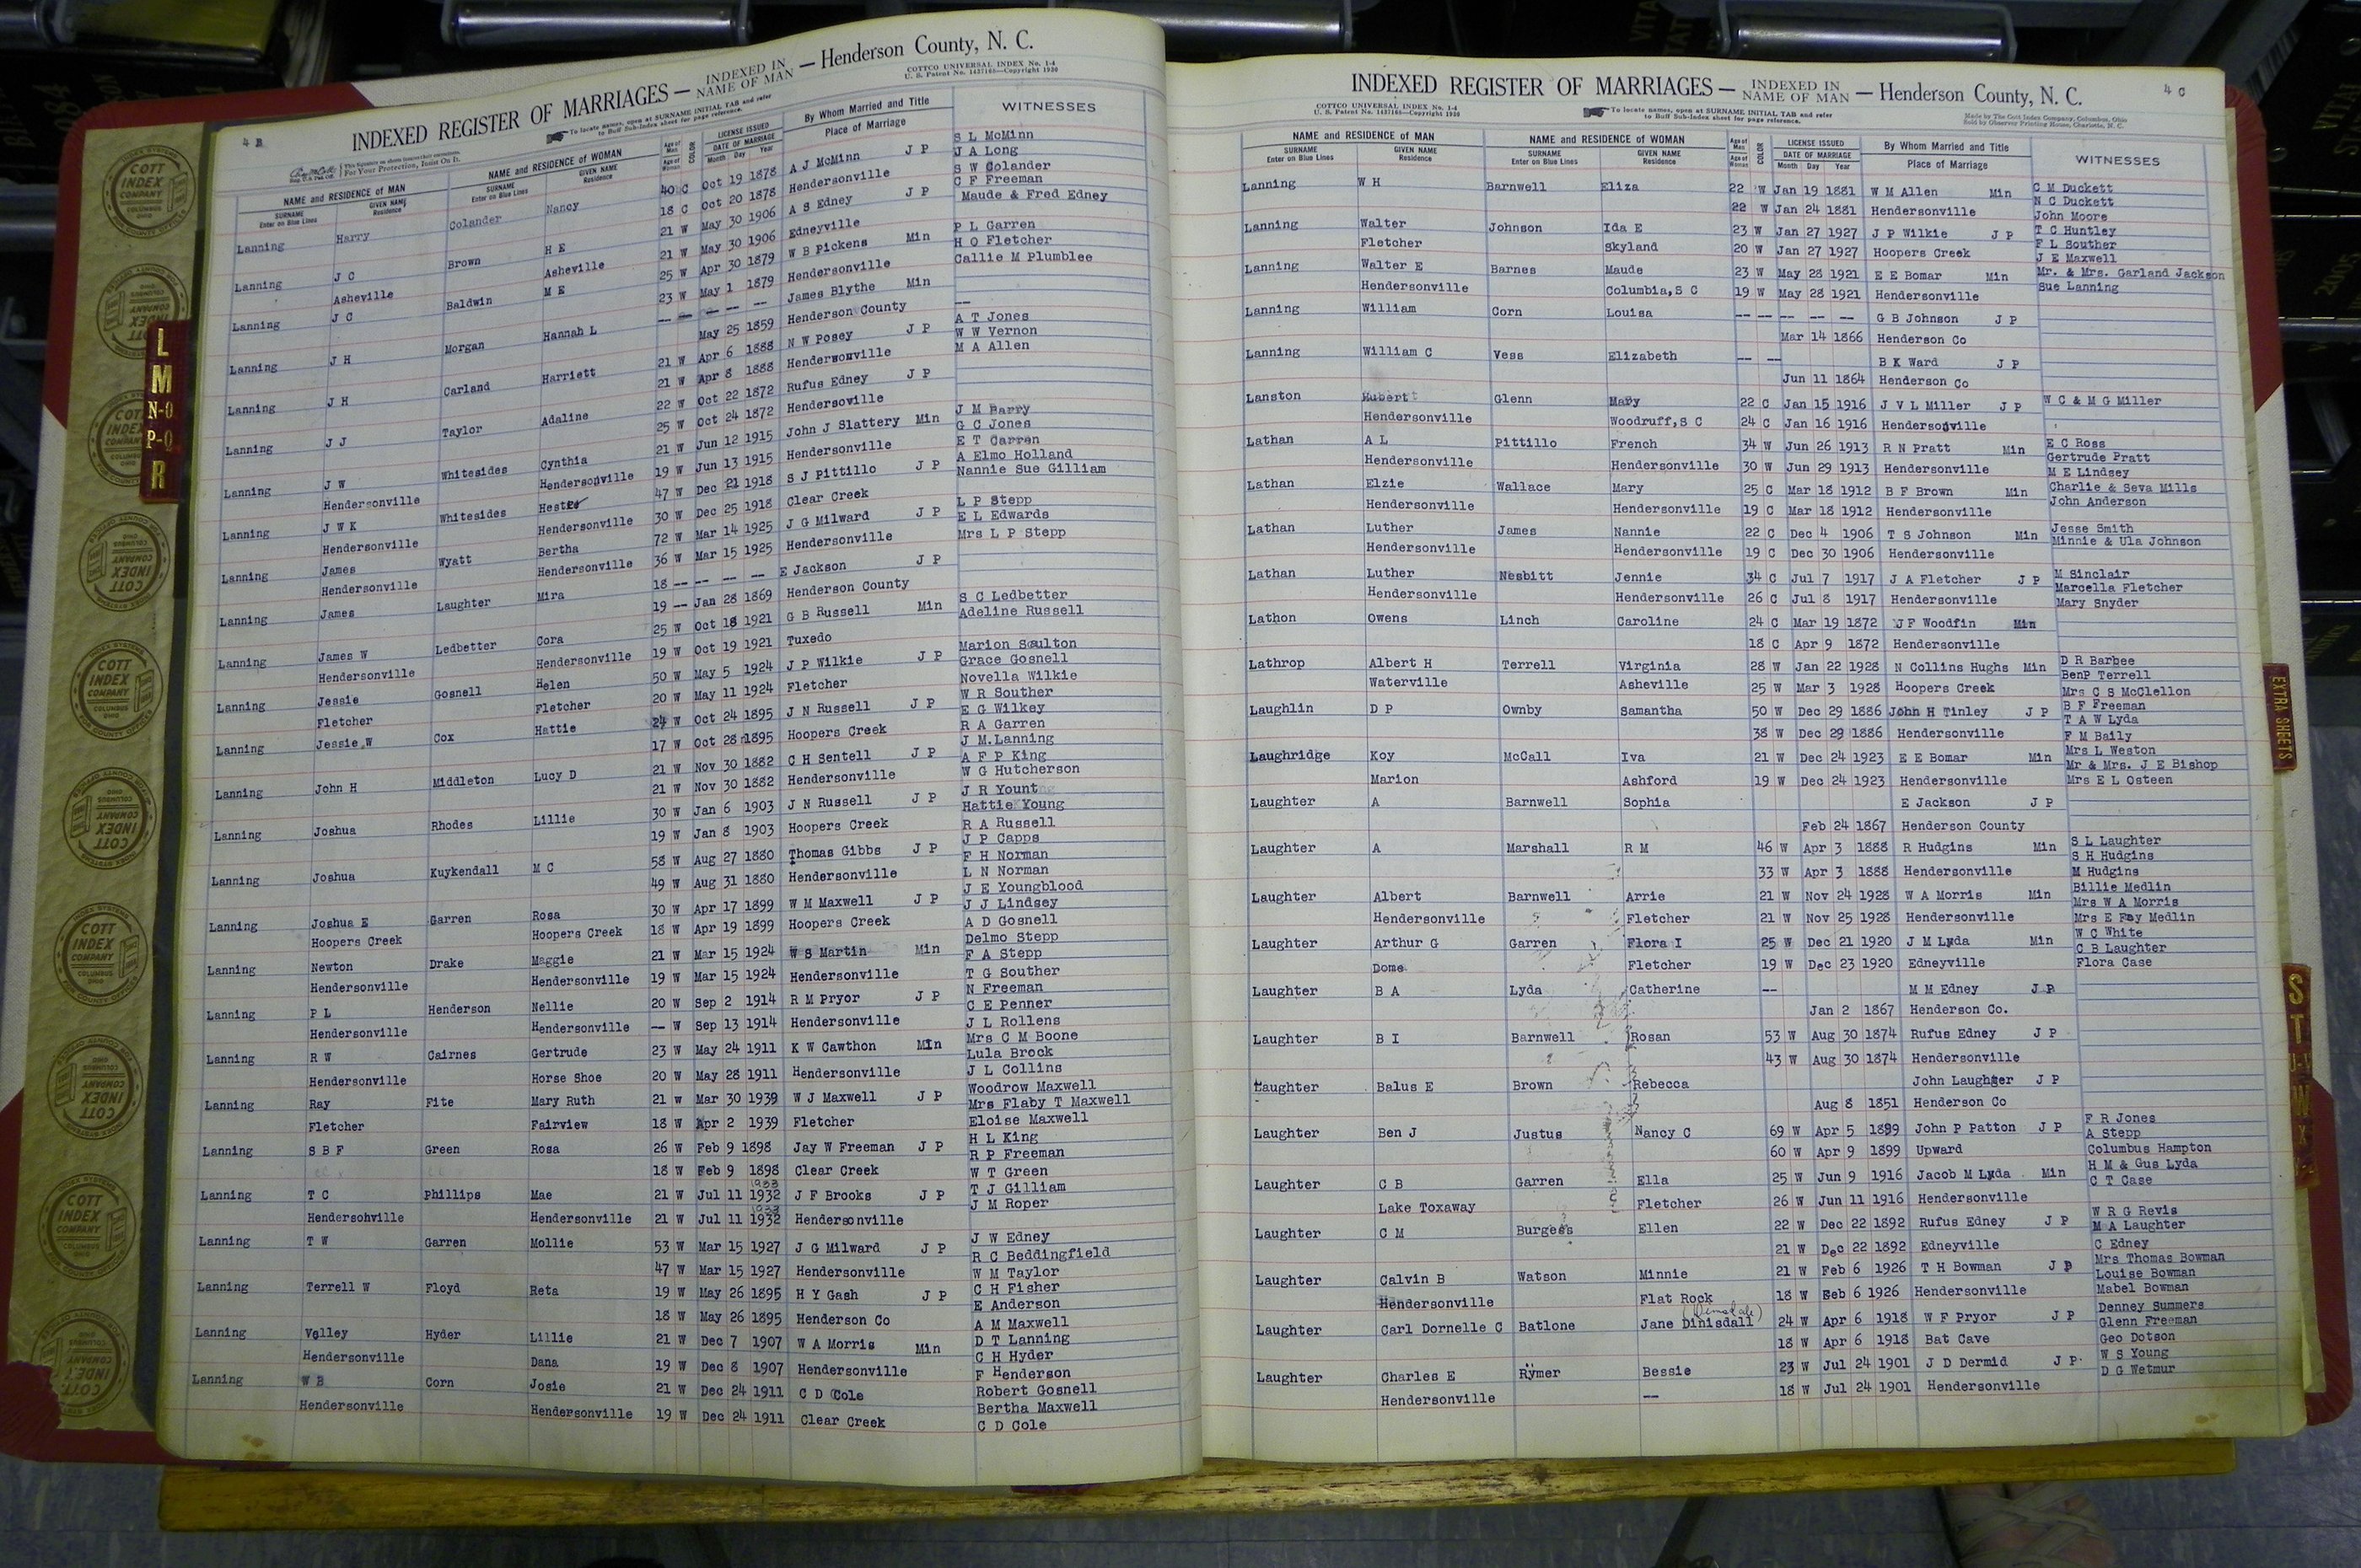 4 B
INDEXED REGISTER OF MARRIAGES — INDEXED IN NAME OF MAN — Henderson County, N. C.
To locate names, open at SURNAME INITIAL TAB and refer to Buff Sub-Index sheet for page reference.
COTTCO UNIVERSAL INDEX No. 1-4
U. S. Patent No. 1437165—Copyright 1930
For Your Protection, Insist On It.
NAME and RESIDENCE OF MAN NAME and RESIDENCE OF WOMAN Age of Man Age of Woman COLOR LICENSE ISSUED DATE OF MARRIAGE By Whom Married and Title Place of Marriage WITNESSES
SURNAME Enter on Blue Lines GIVEN NAME Residence SURNAME Enter on Blue Lines GIVEN NAME Residence Month Day Year
Lanning Harry Colander Nancy 40 C Oct 19 1878 A J McMinn J P S L McMinn
J A Long
18 C Oct 20 1878 Hendersonville S W Colander
Lanning J C Brown H E 21 W May 30 1906 A S Edney J P C F Freeman
Maude & Fred Edney
Asheville Asheville 21 W May 30 1906 Edneyville
Lanning J C Baldwin M E 25 W Apr 30 1879 W B Pickens Min P L Garren
H O Fletcher
23 W May 1 1879 Hendersonville Callie M Plumblee
Lanning J H Morgan Hannah L -- -- -- -- -- James Blythe Min --
May 25 1859 Henderson County
Lanning J H Carland Harriett 21 W Apr 6 1888 N W Posey J P A T Jones
W W Vernon
21 W Apr 8 1888 Hendersonville M A Allen
Lanning J J Taylor Adaline 22 W Oct 22 1872 Rufus Edney J P
25 W Oct 24 1872 Hendersoville
Lanning J W Whitesides Cynthia 21 W Jun 12 1915 John J Slattery Min J M Barry
G C Jones
Hendersonville Hendersonville 19 W Jun 13 1915 Hendersonville E T Garren
Lanning J W K Whitesides Hester 47 W Dec 21 1918 S J Pittillo J P A Elmo Holland
Nannie Sue Gilliam
Hendersonville Hendersonville 30 W Dec 25 1918 Clear Creek
Lanning James Wyatt Bertha 72 W Mar 14 1925 J G Milward J P L P Stepp
E L Edwards
Hendersonville Hendersonville 36 W Mar 15 1925 Hendersonville Mrs L P Stepp
Lanning James Laughter Mira 18 -- -- -- -- E Jackson J P
19 -- Jan 28 1869 Henderson County
Lanning James W Ledbetter Cora 25 W Oct 18 1921 G B Russell Min S C Ledbetter
Adeline Russell
Hendersonville Hendersonville 19 W Oct 19 1921 Tuxedo
Lanning Jessie Gosnell Helen 50 W May 5 1924 J P Wilkie J P Marion Soulton
Grace Gosnell
Fletcher Fletcher 20 W May 11 1924 Fletcher Novella Wilkie
Lanning Jessie W Cox Hattie 24 W Oct 24 1895 J N Russell J P W R Souther
E G Wilkey
17 W Oct 28 1895 Hoopers Creek R A Garren
Lanning John H Middleton Lucy D 21 W Nov 30 1882 C H Sentell J P J M Lanning
A F P King
21 W Nov 30 1882 Hendersonville W G Hutcherson
Lanning Joshua Rhodes Lillie 30 W Jan 6 1903 J N Russell J P J R Young
Hattie Young
19 W Jan 8 1903 Hoopers Creek R A Russell
Lanning Joshua Kuykendall M C 58 W Aug 27 1880 Thomas Gibbs J P J P Capps
F H Norman
49 W Aug 31 1880 Hendersonville L N Norman
Lanning Joshua E Garren Rosa 30 W Apr 17 1899 W M Maxwell J P J E Youngblood
J J Lindsey
Hoopers Creek Hoopers Creek 18 W Apr 19 1899 Hoopers Creek A D Gosnell
Lanning Newton Drake Maggie 21 W Mar 15 1924 W S Martin Min Delmo Stepp
F A Stepp
Hendersonville Hendersonville 19 W Mar 15 1924 Hendersonville T G Souther
Lanning P L Henderson Nellie 20 W Sep 2 1914 R M Pryor J P N Freeman
C E Penner
Hendersonville Hendersonville -- W Sep 13 1914 Hendersonville J L Rollens
Lanning R W Cairnes Gertrude 23 W May 24 1911 K W Cawthon Min Mrs C M Boone
Lula Brock
Hendersonville Horse Shoe 20 W May 28 1911 Hendersonville J L Collins
Lanning Ray Fite Mary Ruth 21 W Mar 30 1939 W J Maxwell J P Woodrow Maxwell
Mrs Flaby T Maxwell
Fletcher Fairview 18 W Apr 2 1939 Fletcher Eloise Maxwell
Lanning S B F Green Rosa 26 W Feb 9 1898 Jay W Freeman J P H L King
R P Freeman
18 W Feb 9 1898 Clear Creek W T Green
1933
Lanning T C Phillips Mae 21 W Jul 11 1932 J F Brooks J P T J Gilliam
J M Roper
1933
Hendersohville Hendersonville 21 W Jul 11 1932 Hendersonville
Lanning T W Garren Mollie 53 W Mar 15 1927 J G Milward J P J W Edney
R C Beddingfield
47 W Mar 15 1927 Hendersonville W M Taylor
Lanning Terrell W Floyd Reta 19 W May 26 1895 H Y Gash J P C H Fisher
E Anderson
18 W May 26 1895 Henderson Co A M Maxwell
Lanning Volley Hyder Lillie 21 W Dec 7 1907 W A Morris Min D T Lanning
C H Hyder
Hendersonville Dana 19 W Dec 8 1907 Hendersonville F Henderson
Lanning W B Corn Josie 21 W Dec 24 1911 C D Cole Robert Gosnell
Bertha Maxwell
Hendersonville Hendersonville 19 W Dec 24 1911 Clear Creek C D Cole
4 C
INDEXED REGISTER OF MARRIAGES — INDEXED IN NAME OF MAN — Henderson County, N. C.
COTTCO UNIVERSAL INDEX No. 1-4
U. S. Patent No. 1437165—Copyright 1930
To locate names, open at SURNAME INITIAL TAB and refer to Buff Sub-Index sheet for page reference.
Made by The Cott Index Company, Columbus, Ohio
Sold by Observer Printing House, Charlotte, N. C.
NAME and RESIDENCE OF MAN NAME and RESIDENCE OF WOMAN Age of Man Age of Woman COLOR LICENSE ISSUED DATE OF MARRIAGE By Whom Married and Title Place of Marriage WITNESSES
SURNAME Enter on Blue Lines GIVEN NAME Residence SURNAME Enter on Blue Lines GIVEN NAME Residence Month Day Year
Lanning W H Barnwell Eliza 22 W Jan 19 1881 W M Allen Min C M Duckett
N C Duckett
22 W Jan 24 1881 Hendersonville John Moore
Lanning Walter Johnson Ida E 23 W Jan 27 1927 J P Wilkie J P T C Huntley
F L Souther
Fletcher Skyland 20 W Jan 27 1927 Hoopers Creek J E Maxwell
Lanning Walter E Barnes Maude 23 W May 28 1921 E E Bomar Min Mr. & Mrs. Garland Jackson
Sue Lanning
Hendersonville Columbia,S C 19 W May 28 1921 Hendersonville
Lanning William Corn Louisa -- -- -- -- -- G B Johnson J P
Mar 14 1866 Henderson Co
Lanning William C Vess Elizabeth -- -- B K Ward J P
Jun 11 1864 Henderson Co
Lanston Hubert Glenn Mary 22 C Jan 15 1916 J V L Miller J P W C & M G Miller
Hendersonville Woodruff,S C 24 C Jan 16 1916 Hendersonville
Lathan A L Pittillo French 34 W Jun 26 1913 R N Pratt Min E C Ross
Gertrude Pratt
Hendersonville Hendersonville 30 W Jun 29 1913 Hendersonville M E Lindsey
Lathan Elzie Wallace Mary 25 C Mar 18 1912 B F Brown Min Charlie & Seva Mills
John Anderson
Hendersonville Hendersonville 19 C Mar 18 1912 Hendersonville
Lathan Luther James Nannie 22 C Dec 4 1906 T S Johnson Min Jesse Smith
Minnie & Ula Johnson
Hendersonville Hendersonville 19 C Dec 30 1906 Hendersonville
Lathan Luther Nesbitt Jennie 34 C Jul 7 1917 J A Fletcher J P M Sinclair
Marcella Fletcher
Hendersonville Hendersonville 26 C Jul 8 1917 Hendersonville Mary Snyder
Lathon Owens Linch Caroline 24 C Mar 19 1872 J F Woodfin Min
18 C Apr 9 1872 Hendersonville
Lathrop Albert H Terrell Virginia 28 W Jan 22 1928 N Collins Hughs Min D R Barbee
BenP Terrell
Waterville Asheville 25 W Mar 3 1928 Hoopers Creek Mrs C S McClellon
Laughlin D P Ownby Samantha 50 W Dec 29 1886 John H Tinley J P B F Freeman
T A W Lyda
38 W Dec 29 1886 Hendersonville F M Baily
Laughridge Koy McCall Iva 21 W Dec 24 1923 E E Bomar Min Mrs L Weston
Mr & Mrs. J E Bishop
Marion Ashford 19 W Dec 24 1923 Hendersonville Mrs E L Osteen
Laughter A Barnwell Sophia E Jackson J P
Feb 24 1867 Henderson County
Laughter A Marshall R M 46 W Apr 3 1888 R Hudgins Min S L Laughter
S H Hudgins
33 W Apr 3 1888 Hendersonville M Hudgins
Laughter Albert Barnwell Arrie 21 W Nov 24 1928 W A Morris Min Billie Medlin
Mrs W A Morris
Hendersonville Fletcher 21 W Nov 25 1928 Hendersonville Mrs E Fay Medlin
Laughter Arthur G Garren Flora I 25 W Dec 21 1920 J M Lyda Min W C White
C B Laughter
Dome Fletcher 19 W Dec 23 1920 Edneyville Flora Case
Laughter B A Lyda Catherine -- M M Edney J P
Jan 2 1867 Henderson Co.
Laughter B I Barnwell Rosan 53 W Aug 30 1874 Rufus Edney J P
43 W Aug 30 1874 Hendersonville
Laughter Balus E Brown Rebecca John Laughter J P
Aug 8 1851 Henderson Co
Laughter Ben J Justus Nancy C 69 W Apr 5 1899 John P Patton J P F R Jones
A Stepp
60 W Apr 9 1899 Upward Columbus Hampton
Laughter C B Garren Ella 25 W Jun 9 1916 Jacob M Lyda Min H M & Gus Lyda
C T Case
Lake Toxaway Fletcher 26 W Jun 11 1916 Hendersonville
Laughter C M Burgess Ellen 22 W Dec 22 1892 Rufus Edney J P W R G Revis
M A Laughter
21 W Dec 22 1892 Edneyville C Edney
Laughter Calvin B Watson Minnie 21 W Feb 6 1926 T H Bowman J P Mrs Thomas Bowman
Louise Bowman
Hendersonville Flat Rock 18 W Feb 6 1926 Hendersonville Mabel Bowman
Laughter Carl Dornelle C Batlone Jane Dinisdall 24 W Apr 6 1918 W F Pryor J P Denney Summers
Glenn Freeman
18 W Apr 6 1918 Bat Cave Geo Dotson
Laughter Charles E Rymer Bessie 23 W Jul 24 1901 J D Dermid J P W S Young
D G Wetmur
Hendersonville -- 18 W Jul 24 1901 Hendersonville
L
M
N-O
P-Q
R
EXTRA SHEETS
S
T
U-V
W
COTT INDEX COMPANY COLUMBUS OHIO
INDEX SYSTEMS FOR COUNTY OFFICES